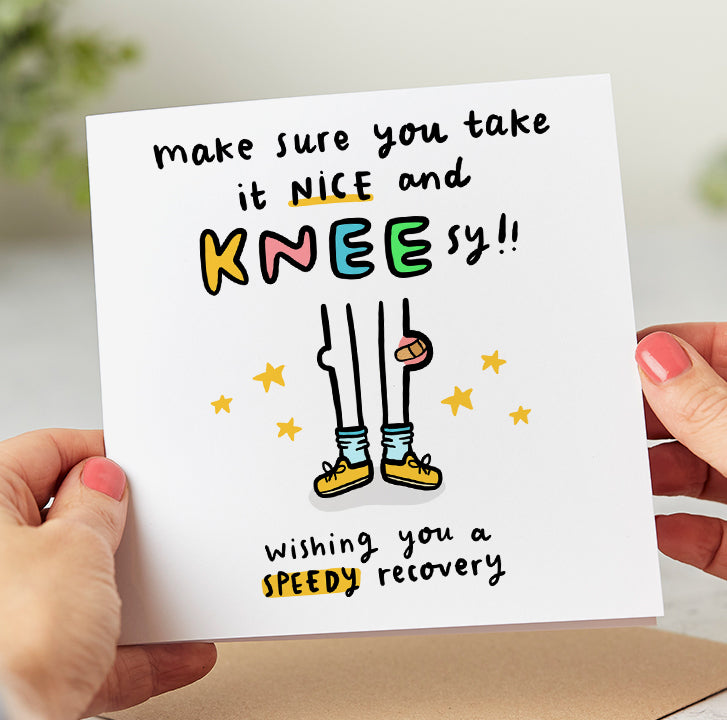 make sure you take
it NICE and
KNEEsy!!
wishing you a
SPEEDY recovery